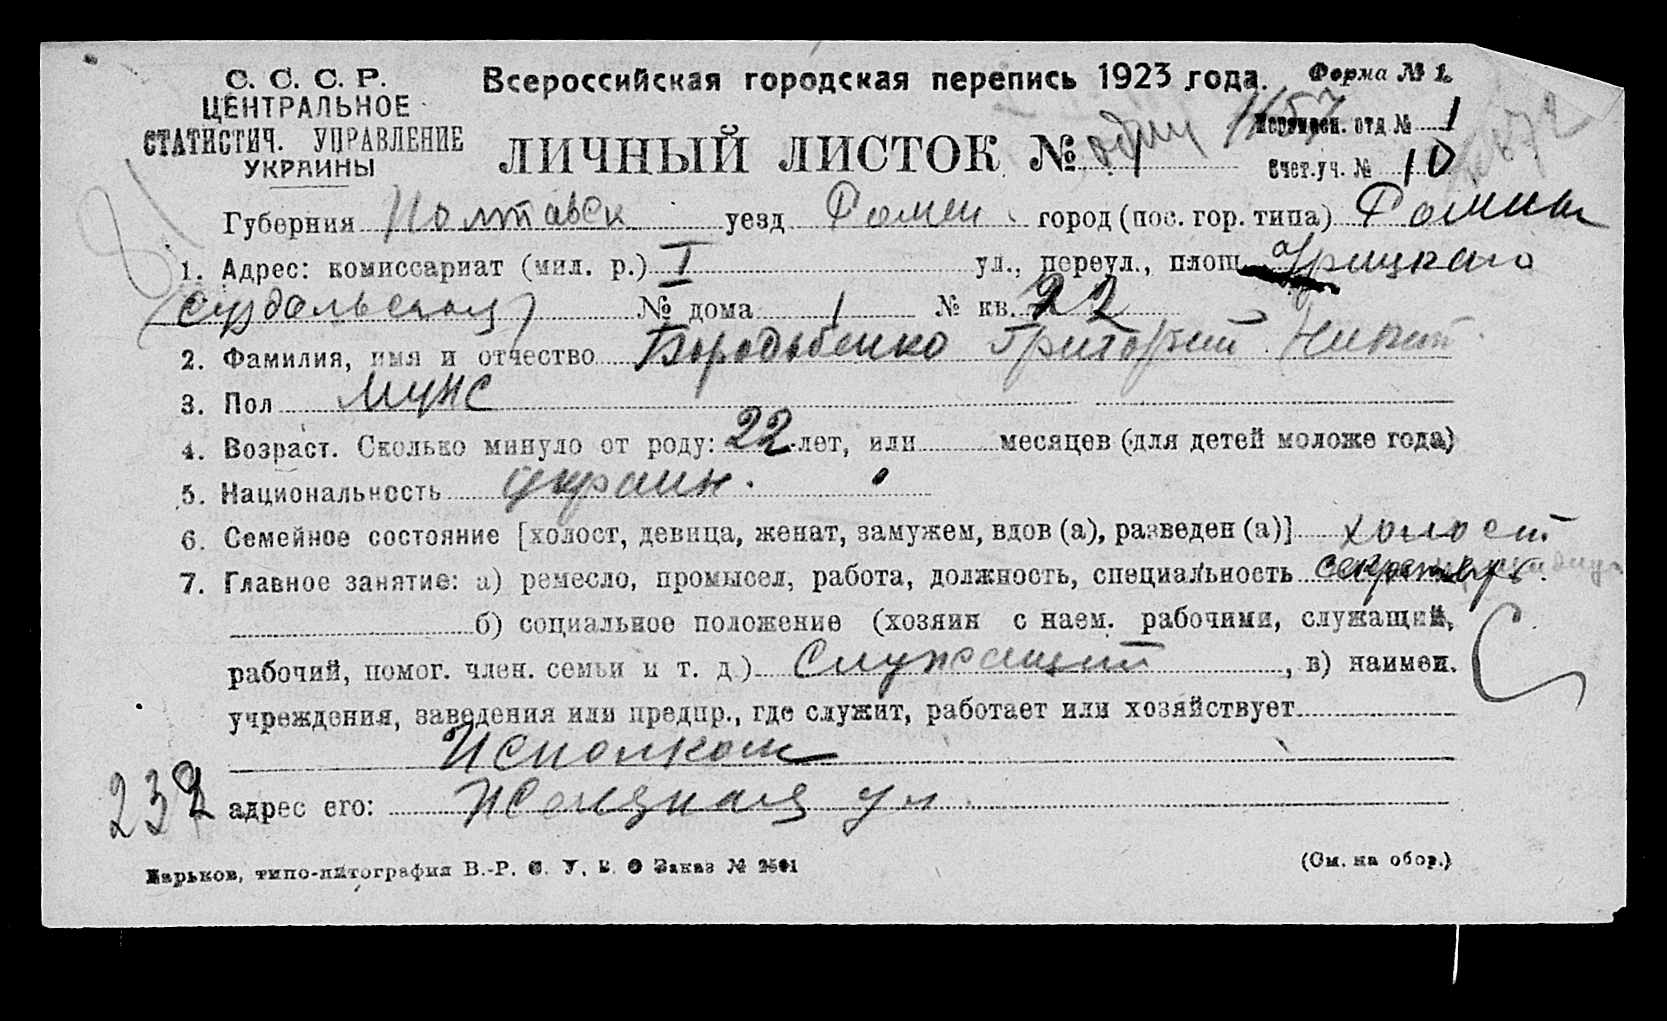 С. С. С. Р. Всероссийская городская перепись 1923 года. Форма № 1.
ЦЕНТРАЛЬНОЕ
СТАТИСТИЧ. УПРАВЛЕНИЕ
УКРАИНЫ
ЛИЧНЫЙ ЛИСТОК № 1 один
отд № 1
Счет.уч. № 10
Губерния Полтавск уезд Ромен город (пос. гор. типа) Ромны
1. Адрес: комиссариат (мил. р.) I ул., переул., площ. Урицкого
(Суздальская) № дома 1 № кв. 22
2. Фамилия, имя и отчество Бородобенко Григорий Никит
3. Пол муж
4. Возраст. Сколько минуло от роду: 22 лет, или месяцев (для детей моложе года)
5. Национальность украин.
6. Семейное состояние [холост, девица, женат, замужем, вдов (а), разведен (а)] холост
7. Главное занятие: а) ремесло, промысел, работа, должность, специальность секретарь
б) социальное положение (хозяин с наем. рабочими, служащий,
рабочий, помог. член. семьи и т. д.) Служащий, в) наимен.
учреждения, заведения или предпр., где служит, работает или хозяйствует
Исполком
232 адрес его: ул.
Харьков, типо-литография В.-Р. Заказ №
(См. на обор.)